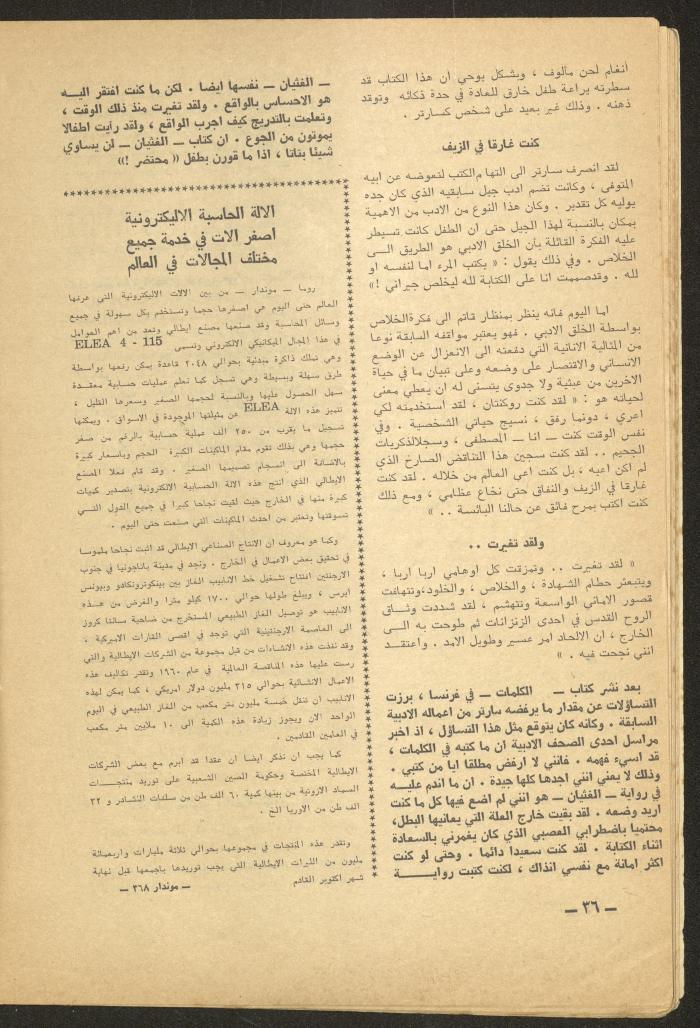 أنغام لحن مالوف ، وبشكل يوحي ان هذا الكتاب قد
سطرته براعة طفل خارق للعادة في حدة ذكائه وتوقد
ذهنه . وذلك غير بعيد على شخص كسارتر .
كنت غارقا في الزيف
لقد انصرف سارتر الى التهام الكتب لتعوضه عن ابيه
المتوفى ، وكانت تضم ادب جيل سابقيه الذي كان جده
يوليه كل تقدير . وكان هذا النوع من الادب من الاهمية
بمكان بالنسبة لهذا الجيل حتى ان الطفل كانت تسيطر
عليه الفكرة القائلة بأن الخلق الادبي هو الطريق الى
الخلاص . وفي ذلك يقول : « يكتب المرء اما لنفسه او
لله . وقد صممت انا على الكتابة لله ليخلص جيراني !»
اما اليوم فانه ينظر بمنظار قاتم الى فكرة الخلاص
بواسطة الخلق الادبي . فهو يعتبر مواقفه السابقة نوعا
من المثالية الانانية التي دفعته الى الانعزال عن الوضع
الانساني والاقتصار على وضعه وعلى تبيان ما في حياة
الاخرين من عبثية ولا جدوى يتسنى له ان يعطي معنى
لحياته هو : « لقد كنت روكنتان ، لقد استخدمته لكي
اعري ، دونما رفق ، نسيج حياتي الشخصية . وفي
نفس الوقت كنت — انا — المصطفى ، وسجلا لذكريات
الجحيم .. لقد كنت سجين هذا التناقض الصارخ الذي
لم اكن اعيه ، بل كنت اعي العالم من خلاله . لقد كنت
غارقا في الزيف والنفاق حتى نخاع عظامي ، ومع ذلك
كنت اكتب بمرح فائق عن حالنا البائسة .. »
ولقد تغيرت ..
« لقد تغيرت .. وتمزقت كل اوهامي اربا اربا ،
ويتبعثر حطام الشهادة ، والخلاص ، والخلود، وتتهافت
قصور الاماني الواسعة وتتهشم . لقد شددت وثاق
الروح القدس في احدى الزنزانات ثم طوحت به الى
الخارج ، ان الالحاد امر عسير وطويل الامد .. وأعتقد
انني نجحت فيه . »
بعد نشر كتاب — الكلمات — في فرنسا ، برزت
التساؤلات عن مقدار ما يرفضه سارتر من اعماله الادبية
السابقة . وكأنه كان يتوقع مثل هذا التساؤل ، اذ اخبر
مراسل احدى الصحف الادبية ان ما كتبه في الكلمات ،
قد اسيء فهمه . فانني لا ارفض مطلقا ايا من كتبي .
وذلك لا يعني انني اجدها كلها جيدة . ان ما اندم عليه
في رواية — الغثيان — هو انني لم اضع فيها كل ما كنت
اريد وضعه . لقد بقيت خارج العلة التي يعانيها البطل،
محتميا باضطرابي العصبي الذي كان يغمرني بالسعادة
اثناء الكتابة . لقد كنت سعيدا دائما . وحتى لو كنت
اكثر امانة مع نفسي انذاك ، لكنت كتبت رواية
— الغثيان — نفسها ايضا . لكن ما كنت افتقر اليه
هو الاحساس بالواقع . ولقد تغيرت منذ ذلك الوقت ،
وتعلمت بالتدريج كيف اجرب الواقع ، ولقد رأيت اطفالا
يموتون من الجوع . ان كتاب — الغثيان — لن يساوي
شيئا بتاتا ، اذا ما قورن بطفل « محتضر !»
الالة الحاسبة الاليكترونية
اصغر الات في خدمة جميع
مختلف المجالات في العالم
روما — موندار — من بين الالات الاليكترونية التي عرفها
العالم حتى اليوم هي اصغرها حجما وتستخدم بكل سهولة في جميع
وسائل المحاسبة وقد صنعها مصنع ايطالي وتعد من اهم العوامل
في هذا المجال الميكانيكي الالكتروني وتسمى ELEA 4 - 115
وهي تملك ذاكرة مبدئية بحوالي ٢٠٤٨ قاعدة يمكن رفعها بواسطة
طرق سهلة وبسيطة وهي تسجل كما تعلم عمليات حسابية معقدة
سهل الحصول عليها وبالنسبة لحجمها الصغير وسعرها القليل ،
تتميز هذه الالة ELEA عن مثيلتها الموجودة في الاسواق . ويمكنها
تسجيل ما يقرب من ٢٥٠ الف عملية حسابية بالرغم من صغر
حجمها وهي بذلك تقوم مقام الماكينات الكبيرة الحجم وبأسعار كبيرة
بالاضافة الى انسجام تصميمها الصغير . وقد قام فعلا المصنع
الايطالي الذي انتج هذه الالة الحسابية الالكترونية بتصدير كميات
كبيرة منها في الخارج حيث لقيت نجاحا كبيرا في جميع الدول التي
تسوقتها وتعتبر من احدث الماكينات التي صنعت حتى اليوم .
وكما هو معروف ان الانتاج الصناعي الايطالي قد اثبت نجاحا ملموسا
في تحقيق بعض الاعمال في الخارج . ونجد في مدينة باتاجونيا في جنوب
الارجنتين افتتاح تشغيل خط الانابيب الغاز بين بيكوترونكادو وبيونس
ايرس ، ويبلغ طولها حوالي ١٧٠٠ كيلو مترا والغرض من هذه
الانابيب هو توصيل الغاز الطبيعي المستخرج من ضاحية سانتا كروز
الى العاصمة الارجنتينية التي توجد في اقصى القارات الاميركية ،
وقد نفذت هذه الانشاءات من قبل مجموعة من الشركات الايطالية والتي
رست عليها هذه المناقصة العالمية في عام ١٩٦٠ وتقدر تكاليف هذه
الاعمال الانشائية بحوالي ٣١٥ مليون دولار امريكي ، كما يمكن لهذه
الانابيب ان تنقل خمسة مليون متر مكعب من الغاز الطبيعي في اليوم
الواحد الان ويجوز زيادة هذه الكمية الى ١٠ ملايين متر مكعب
في العامين القادمين .
كما يجب ان نذكر ايضا ان عقدا قد ابرم مع بعض الشركات
الايطالية المختصة وحكومة الصين الشعبية على توريد منتجات
السماد الازوتية من بينها كمية ٦٠ الف طن من سلفات النشادر و ٢٢
الف طن من الاوريا الخ .
وتقدر هذه المنتجات في مجموعها بحوالي ثلاثة مليارات واربعمائة
مليون من الليرات الايطالية التي يجب توريدها بأجمعها قبل نهاية
شهر اكتوبر القادم — موندار ٣٦٨ —
— ٣٦ —